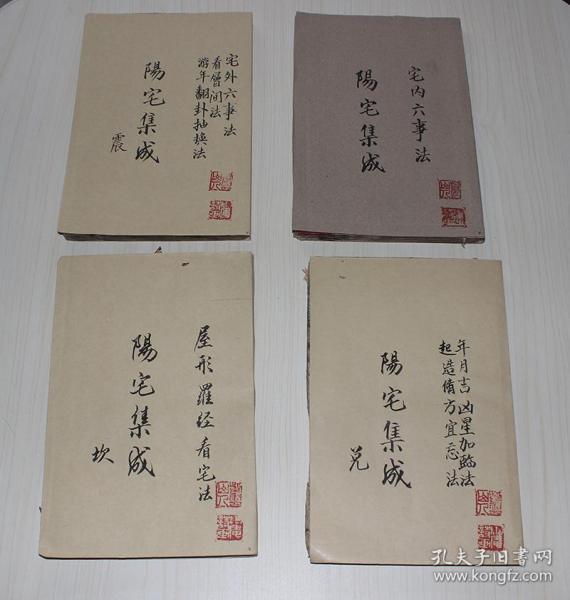 宅外六事法
看層间法
游年翻卦抽換法
陽宅集成
震
宅内六事法
陽宅集成
屋形羅经看宅法
陽宅集成
坎
年月吉凶星加臨法
起造脩方宜忌法
陽宅集成
兑
孔夫子旧书网
www.kongfz.com